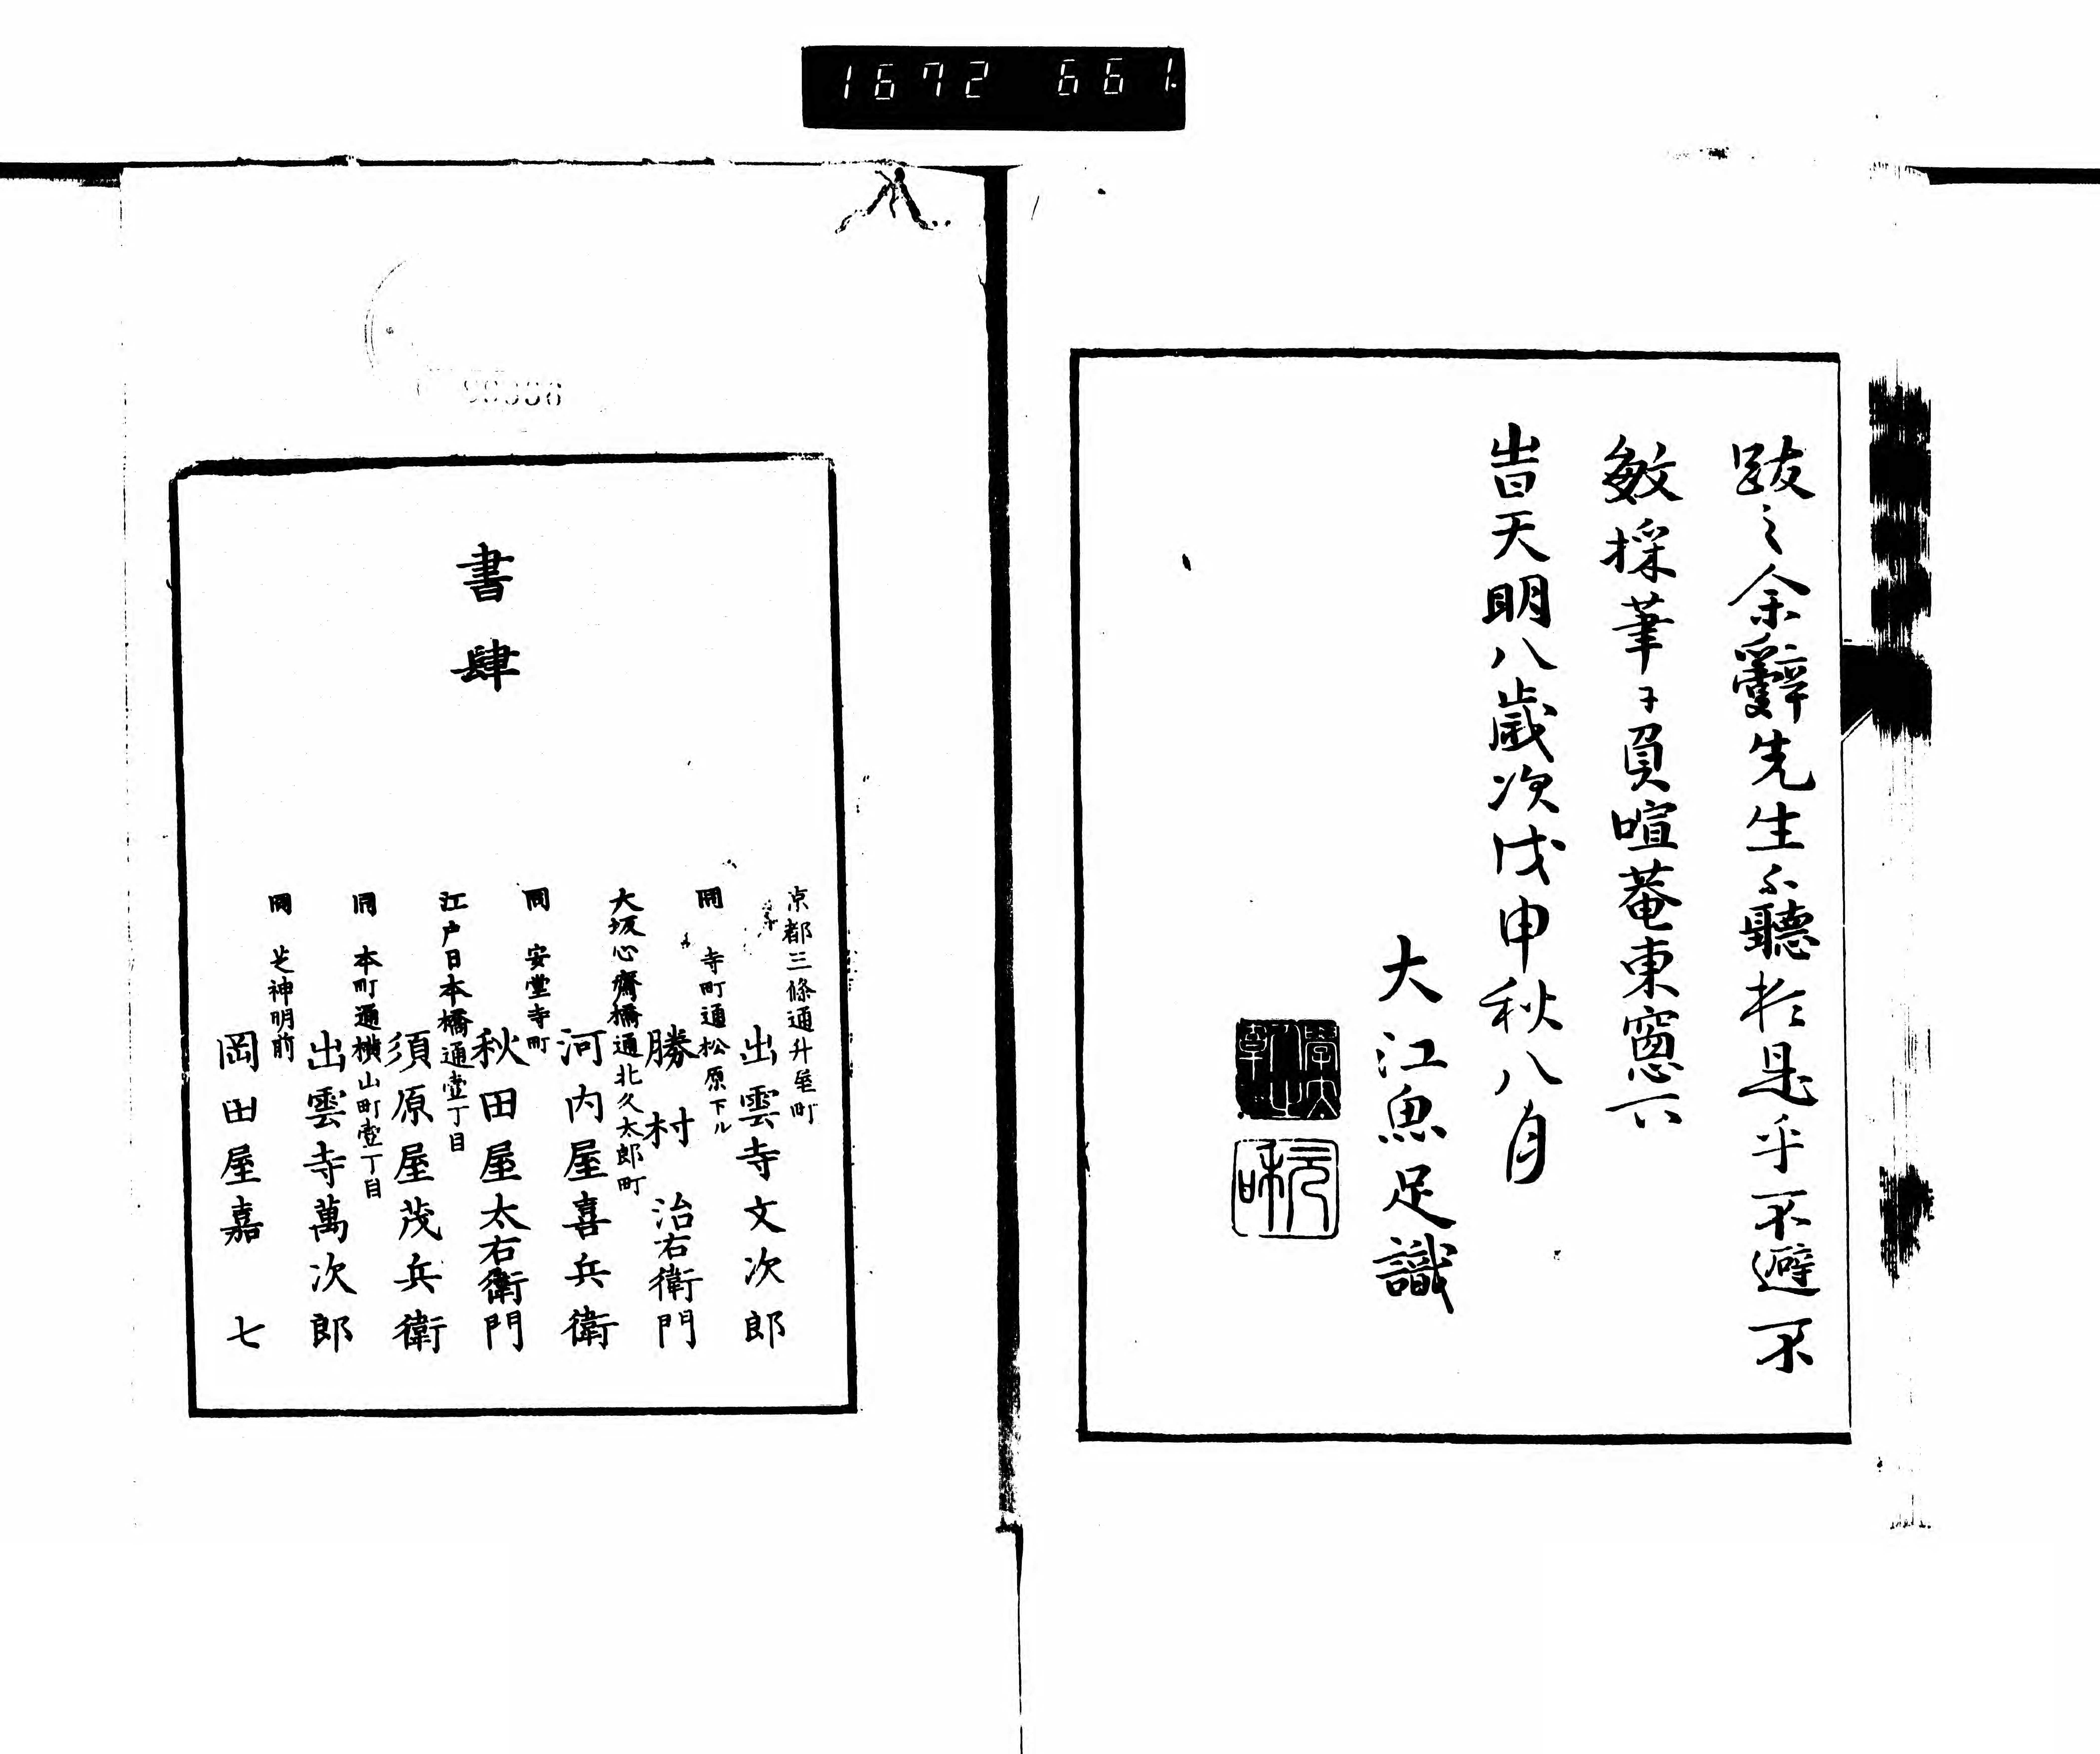 1672 661.
跋之余辭先生不聽於是乎不避不
敏採筆于負暄菴東窓下
旹天明八歳次戊申秋八月
大江魚足識
書肆
京都三條通升屋町
出雲寺文次郎
同 寺町通松原下ル
勝村治右衛門
大坂心齋橋通北久太郎町
河内屋喜兵衛
同 安堂寺町
秋田屋太右衛門
江戸日本橋通壹丁目
須原屋茂兵衛
同 本町通横山町壹丁目
出雲寺萬次郎
同 芝神明前
岡田屋嘉七